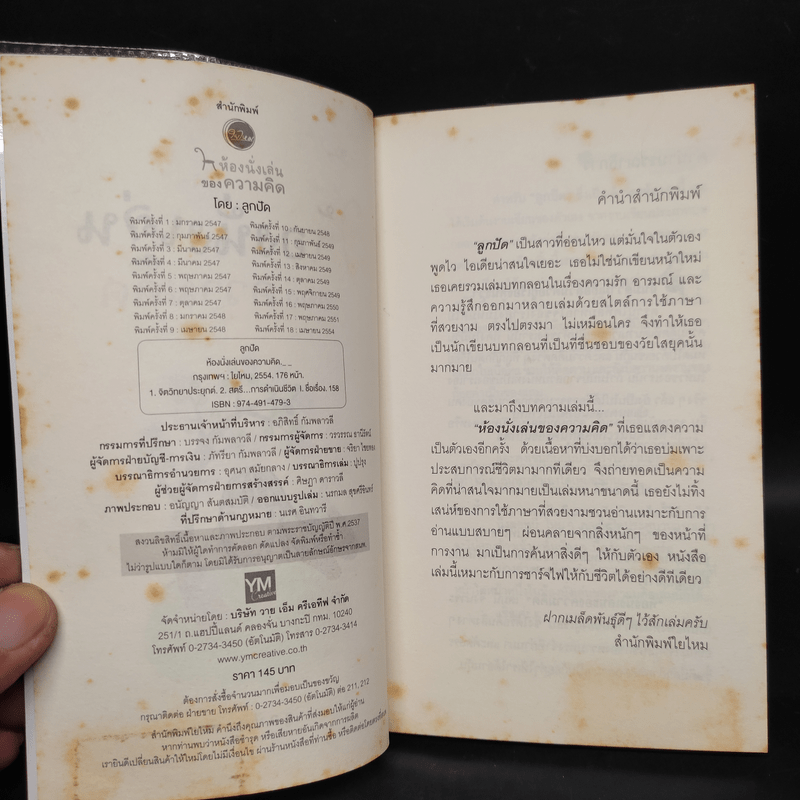 สำนักพิมพ์
ใยไหม
ห้องนั่งเล่น
ของความคิด
โดย : ลูกปัด
พิมพ์ครั้งที่ 1 : มกราคม 2547
พิมพ์ครั้งที่ 2 : กุมภาพันธ์ 2547
พิมพ์ครั้งที่ 3 : มีนาคม 2547
พิมพ์ครั้งที่ 4 : มีนาคม 2547
พิมพ์ครั้งที่ 5 : พฤษภาคม 2547
พิมพ์ครั้งที่ 6 : พฤษภาคม 2547
พิมพ์ครั้งที่ 7 : ตุลาคม 2547
พิมพ์ครั้งที่ 8 : มกราคม 2548
พิมพ์ครั้งที่ 9 : เมษายน 2548
พิมพ์ครั้งที่ 10 : กันยายน 2548
พิมพ์ครั้งที่ 11 : กุมภาพันธ์ 2549
พิมพ์ครั้งที่ 12 : เมษายน 2549
พิมพ์ครั้งที่ 13 : สิงหาคม 2549
พิมพ์ครั้งที่ 14 : ตุลาคม 2549
พิมพ์ครั้งที่ 15 : พฤศจิกายน 2549
พิมพ์ครั้งที่ 16 : พฤษภาคม 2550
พิมพ์ครั้งที่ 17 : พฤษภาคม 2551
พิมพ์ครั้งที่ 18 : เมษายน 2554
ลูกปัด
ห้องนั่งเล่นของความคิด._ _
กรุงเทพฯ : ใยไหม, 2554. 176 หน้า.
1. จิตวิทยาประยุกต์. 2. สตรี...การดำเนินชีวิต I. ชื่อเรื่อง. 158
ISBN : 974-491-479-3
ประธานเจ้าหน้าที่บริหาร : อภิสิทธิ์ กัมพลาวลี
กรรมการที่ปรึกษา : บรรจง กัมพลาวลี / กรรมการผู้จัดการ : วรวรรณ ธานีรัตน์
ผู้จัดการฝ่ายบัญชี-การเงิน : ภัทรียา กัมพลาวลี / ผู้จัดการฝ่ายขาย : จริยา ไชยทอง
บรรณาธิการอำนวยการ : ยุศนา สมัยกลาง / บรรณาธิการเล่ม : ปูปรุง
ผู้ช่วยผู้จัดการฝ่ายการสร้างสรรค์ : ศิษฎา ดาราวลี
ภาพประกอบ : อนัญญา สันตสมบัติ / ออกแบบรูปเล่ม : นรกมล สุขศรีรินท์
ที่ปรึกษาด้านกฎหมาย : นเรศ อินทวารี
สงวนลิขสิทธิ์เนื้อหาและภาพประกอบ ตามพระราชบัญญัติปี พ.ศ.2537
ห้ามมิให้ผู้ใดทำการคัดลอก ดัดแปลง จัดพิมพ์หรือทำซ้ำ
ไม่ว่ารูปแบบใดก็ตาม โดยมิได้รับการอนุญาตเป็นลายลักษณ์อักษรจากสนพ.
YM
creative
จัดจำหน่ายโดย : บริษัท วาย เอ็ม ครีเอทีฟ จำกัด
251/1 ถ.แฮปปี้แลนด์ คลองจั่น บางกะปิ กทม. 10240
โทรศัพท์ 0-2734-3450 (อัตโนมัติ) โทรสาร 0-2734-3414
www.ymcreative.co.th
ราคา 145 บาท
ต้องการสั่งซื้อจำนวนมากเพื่อมอบเป็นของขวัญ
กรุณาติดต่อ ฝ่ายขาย โทรศัพท์ : 0-2734-3450 (อัตโนมัติ) ต่อ 211, 212
สำนักพิมพ์ใยไหม คำนึงถึงคุณภาพของสินค้าที่ส่งมอบให้แก่ผู้อ่าน
หากท่านพบว่าหนังสือชำรุด หรือเสียหายอันเกิดจากการผลิต
เรายินดีเปลี่ยนสินค้าให้ใหม่โดยไม่มีเงื่อนไข ผ่านร้านหนังสือที่ท่านซื้อ หรือติดต่อโดยตรง
คำนำสำนักพิมพ์
"ลูกปัด" เป็นสาวที่อ่อนไหว แต่มั่นใจในตัวเอง
พูดไว ไอเดียน่าสนใจเยอะ เธอไม่ใช่นักเขียนหน้าใหม่
เธอเคยรวมเล่มบทกลอนในเรื่องความรัก อารมณ์ และ
ความรู้สึกออกมาหลายเล่มด้วยสไตล์การใช้ภาษา
ที่สวยงาม ตรงไปตรงมา ไม่เหมือนใคร จึงทำให้เธอ
เป็นนักเขียนบทกลอนที่เป็นที่ชื่นชอบของวัยใสยุคนั้น
มากมาย
และมาถึงบทความเล่มนี้...
"ห้องนั่งเล่นของความคิด" ที่เธอแสดงความ
เป็นตัวเองอีกครั้ง ด้วยเนื้อหาที่บ่งบอกได้ว่าเธอบ่มเพาะ
ประสบการณ์ชีวิตมามากทีเดียว จึงถ่ายทอดเป็นความ
คิดที่น่าสนใจมากมายเป็นเล่มหนาขนาดนี้ เธอยังไม่ทิ้ง
เสน่ห์ของการใช้ภาษาที่สวยงามชวนอ่านเหมาะกับการ
อ่านแบบสบายๆ ผ่อนคลายจากสิ่งหนักๆ ของหน้าที่
การงาน มาเป็นการค้นหาสิ่งดีๆ ให้กับตัวเอง หนังสือ
เล่มนี้เหมาะกับการชาร์จไฟให้กับชีวิตได้อย่างดีทีเดียว
ฝากเมล็ดพันธุ์ดีๆ ไว้สักเล่มครับ
สำนักพิมพ์ใยไหม